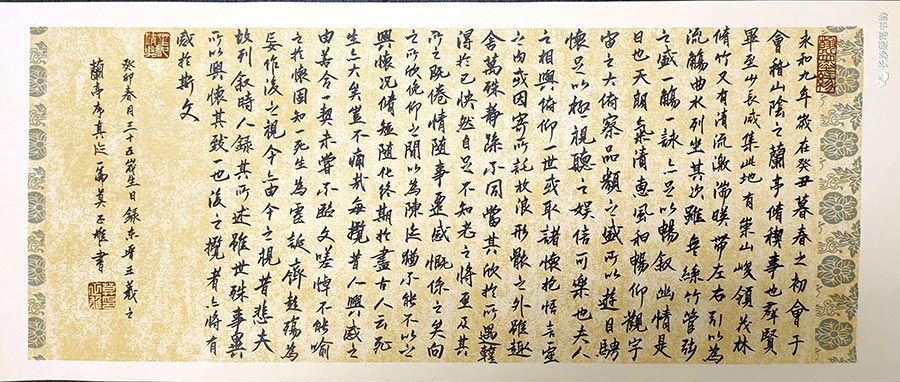 永和九年歲在癸丑暮春之初會于
會稽山陰之蘭亭脩禊事也群賢
畢至少長咸集此地有崇山峻領茂林
脩竹又有清流激湍暎帶左右引以為
流觴曲水列坐其次雖無絲竹管弦
之盛一觴一詠亦足以暢叙幽情是
日也天朗氣清惠風和暢仰觀宇
宙之大俯察品類之盛所以遊目騁
懷足以極視聽之娛信可樂也夫人
之相與俯仰一世或取諸懷抱悟言一室
之內或因寄所託放浪形骸之外雖趣
舍萬殊靜躁不同當其欣於所遇蹔
得於己快然自足不知老之將至及其
所之既倦情随事遷感慨係之矣向
之所欣俛仰之閒以為陳迹猶不能不以之
興懷況脩短随化終期於盡古人云死
生亦大矣豈不痛哉每攬昔人興感之
由若合一契未嘗不臨文嗟悼不能喻
之於懷固知一死生為虛誕齊彭殤為
妄作後之視今亦由今之視昔悲夫
故列叙時人録其所述雖世殊事異
所以興懷其致一也後之攬者亦將有
感於斯文
癸卯春月三十五歲生日錄東晉王羲之
蘭亭序真迹一篇莫正雄書